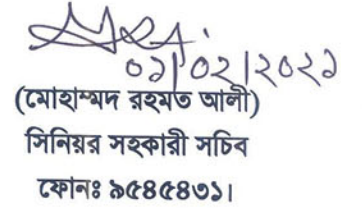 ০১/০২/২০২১
(মোহাম্মদ রহমত আলী)
সিনিয়র সহকারী সচিব
ফোনঃ ৯৫৪৫৪৩১।